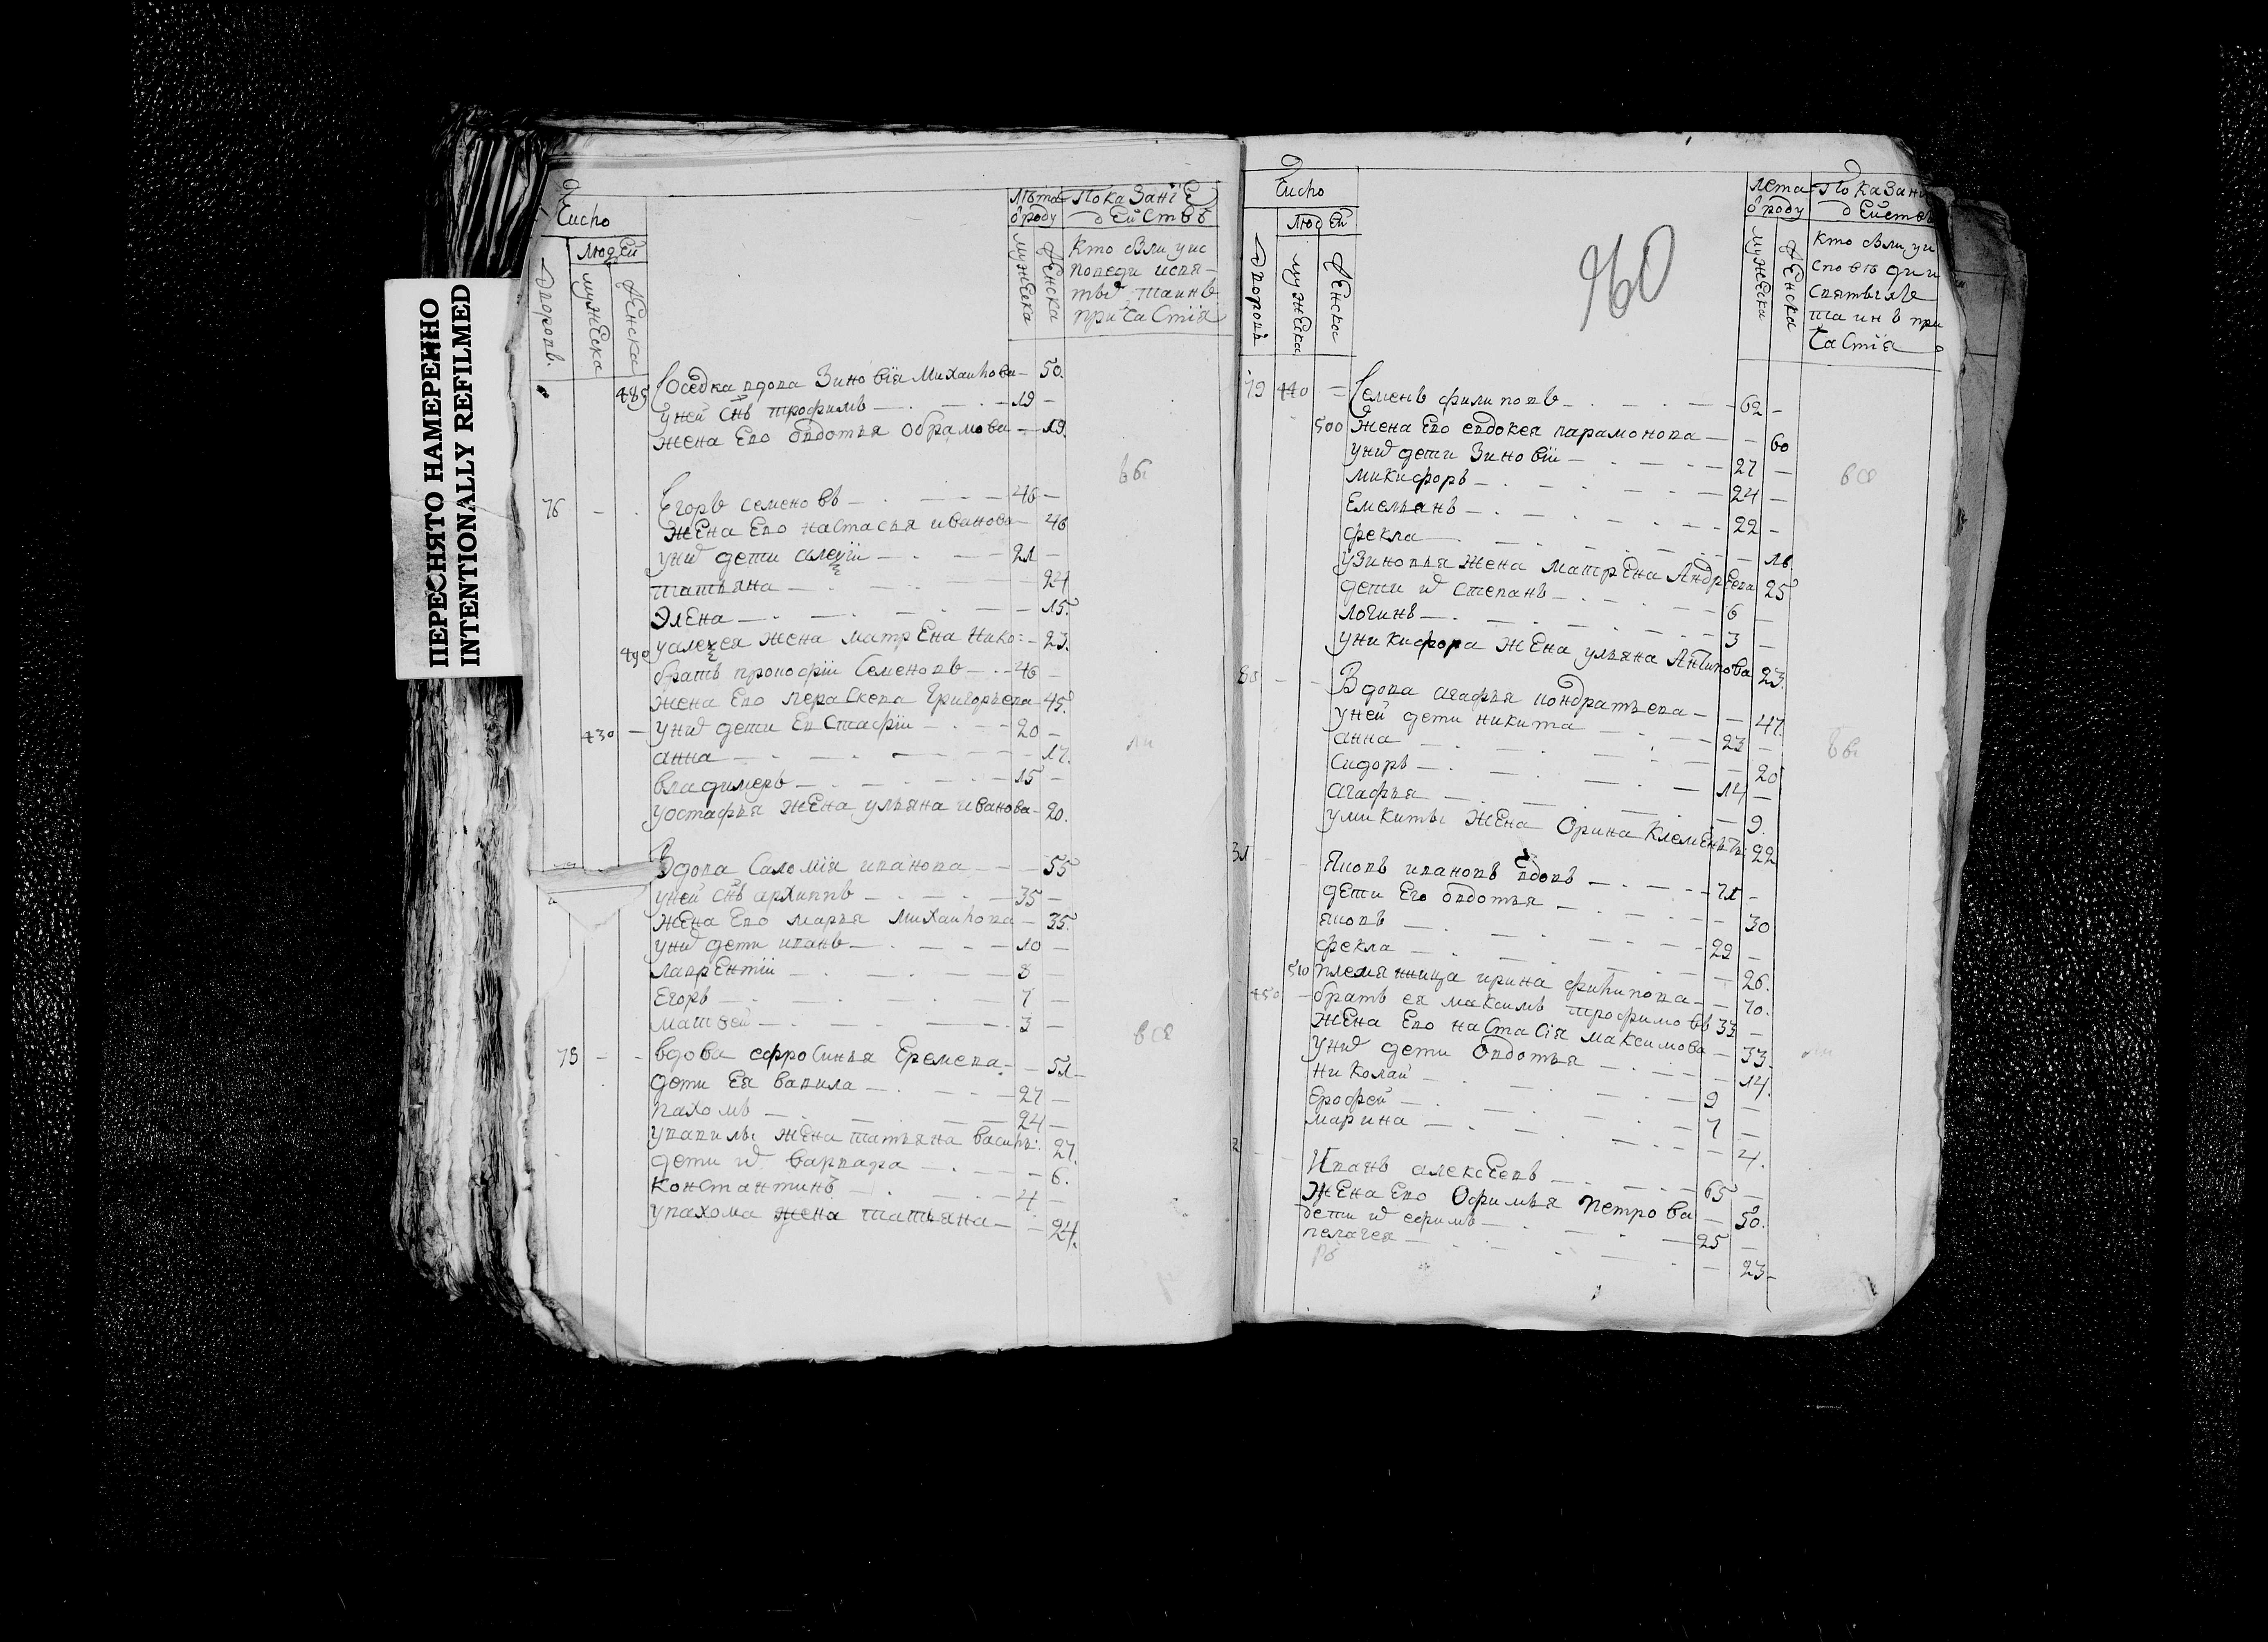 ПЕРЕСНЯТО НАМЕРЕННО
INTENTIONALLY REFILMED
Число
Людей
Дворовъ
мужеска
женска
Лѣта
о роду
мужеска
женска
ПокаЗанїЕ
дЕйствъ
Кто был у ис
поведи и свя-
тых таинъ
причастия
485 Соседка вдова Зиновїя Михайлова — 50.
у ней снъ трофимъ — 19 —
жена Его овдотья обрамова — 19.
76 Егоръ семеновъ — 46 —
жена Его настасья иванова — 46
у них дети алексїй — 21 —
татьяна — 24
Элена — 15.
490 у алексея жена матрена Нико: — 23.
братъ прокофїй Семеновъ — 46 —
жена Его пераскева Григорьева — 45.
430 — у них дети Евстафїй — 20 —
анна — 17.
владимеръ — 15 —
у остафья жена ульяна иванова — 20.
Вдова Саломїя иванова — 55
у ней снъ архиппъ — 35 —
жена Его марья Михайлова — 35.
у них дети иванъ — 10 —
лаврентїй — 8 —
Егоръ — 7 —
матвей — 3 —
78 — — вдова ефросинья Еремева — 51 —
дети Ея вавила — 27 —
пахомъ — 24 —
у вавилы жена татьяна василь: 27.
дети их варвара — 6.
константинъ — 4 —
у пахома жена татьяна — 24.
все
Число
Людей
Дворовъ
мужеска
женска
Лета
о роду
мужеска
женска
ПокаЗани
дЕйствъ
Кто был у и
споведи и
святых
таинъ при
частия
79 440 — Семенъ филиповъ — 62 —
500 жена Его евдокея парамонова — 60
у них дети Зиновїй — 27 —
микифоръ — 24 —
Емельянъ — 22 —
фекла — 16.
у Зиновья жена матрена Андреева 25
дети их степанъ — 6 —
логинъ — 3 —
у никифора жена ульяна Антипова 23.
80 — — Вдова агафья кондратьева — 47.
у ней дети никита — 23 —
анна — 20
Сидоръ — 14 —
агафья — 9.
у микиты жена Орина Клементь: 22
81 — — Яковъ ивановъ вдовъ — 71 —
дети Его овдотья — 30
яковъ — 22 —
фекла — 26.
510 племянница ирина филипова — 70.
450 — братъ ея максимъ трофимовъ 33 —
жена Его настасїя максимова — 33.
у них дети Овдотья — 14.
николай — 9 —
Ерофей — 7 —
марина — 4.
Иванъ алексеевъ — 65 —
жена Его Офимья петрова — 50.
дети их ефимъ — 25 —
пелагея — 23 —
все